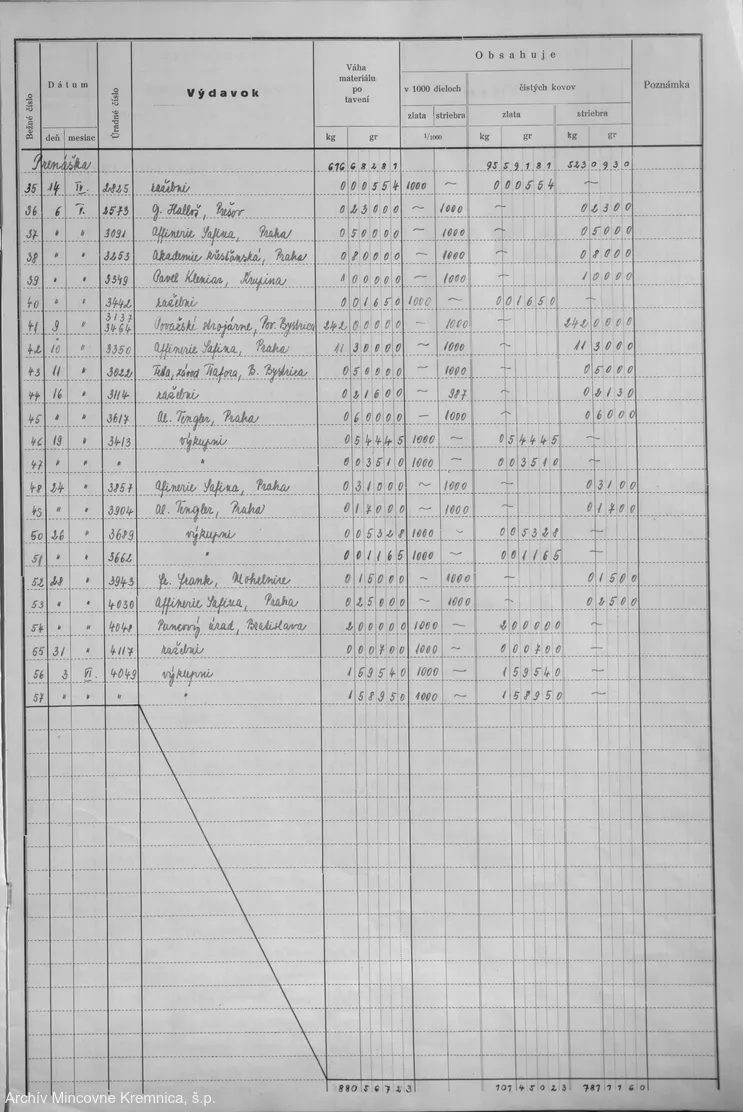 Obsahuje
Bežné číslo | Dátum | Úradné číslo | Výdavok | Váha materiálu po tavení | v 1000 dieloch | čistých kovov | Poznámka
zlata | striebra | zlata | striebra
deň | mesiac | kg | gr | 1/1000 | kg | gr | kg | gr
Prenáška 616 68281 95 59181 523 0930
35 14 IV. 2825 razební 000554 1000 ~ 000554 ~
36 6 V. 2573 G. Halloš, Prešov 023000 ~ 1000 ~ 02300
37 " " 3091 Affinerie Safina, Praha 050000 ~ 1000 ~ 05000
38 " " 3253 Akademie křesťanská, Praha 080000 ~ 1000 ~ 08000
39 " " 3349 Pavel Klenian, Krupina 100000 ~ 1000 ~ 10000
40 " " 3442 razební 001650 1000 ~ 001650 ~
41 9 " 3137 3464 Považské strojárne, Pov. Bystrica 242 00000 ~ 1000 ~ 242 0000
42 10 " 3350 Affinerie Safina, Praha 11 30000 ~ 1000 ~ 11 3000
43 11 " 3022 Tesla, závod Trafora, B. Bystrica 050000 ~ 1000 ~ 05000
44 16 " 3114 razební 021600 ~ 987 ~ 02130
45 " " 3617 Al. Tengler, Praha 060000 — 1000 ~ 06000
46 19 " 3413 výkupní 054445 1000 ~ 054445 ~
47 " " " " 003510 1000 ~ 003510 ~
48 24 " 3857 Afinerie Safina, Praha 031000 ~ 1000 ~ 03100
49 " " 3904 Al. Tengler, Praha 017000 ~ 1000 ~ 01700
50 26 " 3689 výkupní 005328 1000 ~ 005328 ~
51 " " 3662 " 001165 1000 ~ 001165 ~
52 28 " 3943 Fr. Frank, Mohelnice 015000 ~ 1000 ~ 01500
53 " " 4030 Affinerie Safina, Praha 025000 ~ 1000 ~ 02500
54 " " 4048 Puncový úrad, Bratislava 200000 1000 ~ 200000 ~
55 31 " 4117 razební 000700 1000 ~ 000700 ~
56 3 VI. 4049 výkupní 159540 1000 — 159540 ~
57 " " " " 158950 1000 ~ 158950 ~
880 56723 101 45023 787 7760
Archív Mincovne Kremnica, š.p.